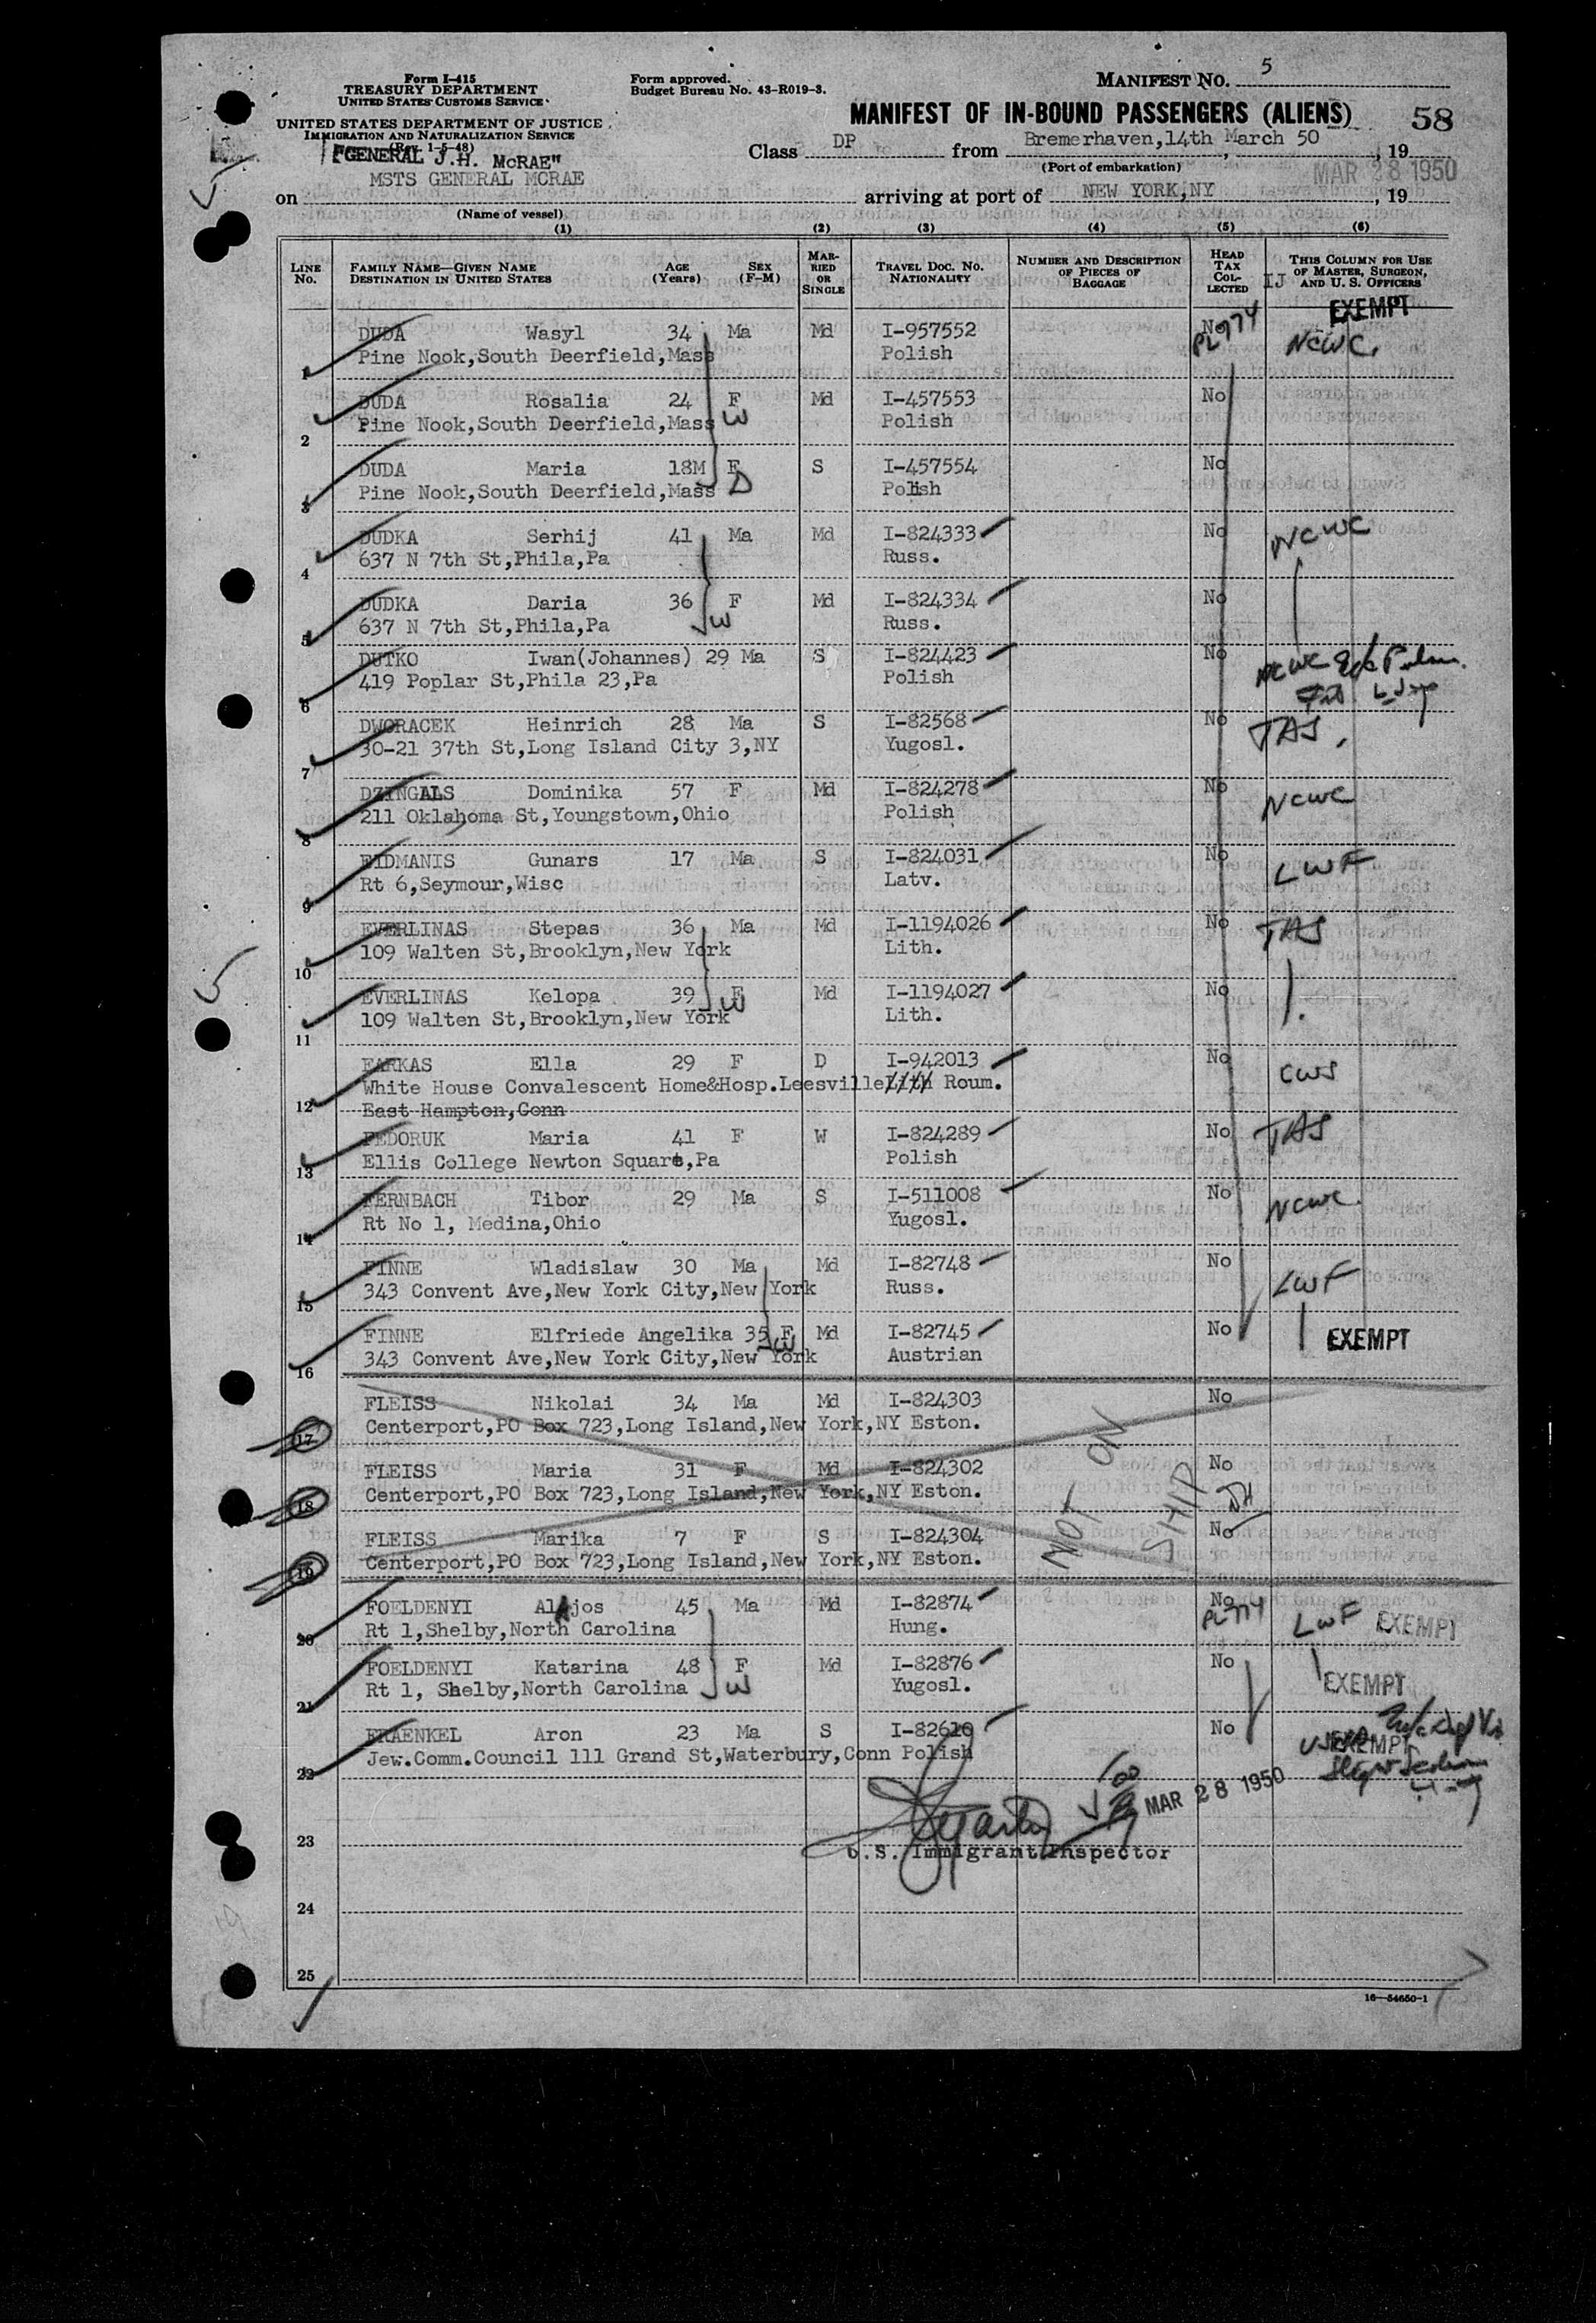 Form I-415
TREASURY DEPARTMENT
UNITED STATES CUSTOMS SERVICE
UNITED STATES DEPARTMENT OF JUSTICE
IMMIGRATION AND NATURALIZATION SERVICE
(Rev. 1-5-48)
Form approved.
Budget Bureau No. 43-R019-3.
MANIFEST NO. 5
MANIFEST OF IN-BOUND PASSENGERS (ALIENS) 58
Class DP from Bremerhaven,14th March 50, 19
(Port of embarkation)
"GENERAL J.H. McRAE"
MAR 28 1950
on MSTS GENERAL MCRAE arriving at port of NEW YORK,NY, 19
(Name of vessel)
(1) (2) (3) (4) (5) (6)
LINE No. FAMILY NAME—GIVEN NAME DESTINATION IN UNITED STATES AGE (Years) SEX (F-M) MARRIED OR SINGLE TRAVEL DOC. NO. NATIONALITY NUMBER AND DESCRIPTION OF PIECES OF BAGGAGE HEAD TAX COLLECTED THIS COLUMN FOR USE OF MASTER, SURGEON, AND U. S. OFFICERS
IJ
EXEMPT
DUDA Wasyl 34 Ma Md I-957552 No PL774 NCWC.
1 Pine Nook,South Deerfield,Mass Polish
DUDA Rosalia 24 F Md I-457553 No
2 Pine Nook,South Deerfield,Mass W Polish
DUDA Maria 18M F S I-457554 No
3 Pine Nook,South Deerfield,Mass D Polish
DUDKA Serhij 41 Ma Md I-824333 No NCWC
4 637 N 7th St,Phila,Pa Russ.
DUDKA Daria 36 F Md I-824334 No
5 637 N 7th St,Phila,Pa W Russ.
DUTKO Iwan(Johannes) 29 Ma S I-824423 No NCWC
6 419 Poplar St,Phila 23,Pa Polish
DWORACEK Heinrich 28 Ma S I-82568 No TAS
7 30-21 37th St,Long Island City 3,NY Yugosl.
DZINGALS Dominika 57 F Md I-824278 No NCWC
8 211 Oklahoma St,Youngstown,Ohio Polish
EIDMANIS Gunars 17 Ma S I-824031 No LWF
9 Rt 6,Seymour,Wisc Latv.
EVERLINAS Stepas 36 Ma Md I-1194026 No TAS
10 109 Walten St,Brooklyn,New York Lith.
EVERLINAS Kelopa 39 F Md I-1194027 No
11 109 Walten St,Brooklyn,New York W Lith.
FARKAS Ella 29 F D I-942013 No CWS
12 White House Convalescent Home&Hosp.Leesville Lith Roum.
East Hampton,Conn
FEDORUK Maria 41 F W I-824289 No TAS
13 Ellis College Newton Square,Pa Polish
FERNBACH Tibor 29 Ma S I-511008 No NCWC.
14 Rt No 1, Medina,Ohio Yugosl.
FINNE Wladislaw 30 Ma Md I-82748 No LWF
15 343 Convent Ave,New York City,New York Russ.
FINNE Elfriede Angelika 35 F Md I-82745 No EXEMPT
16 343 Convent Ave,New York City,New York W Austrian
FLEISS Nikolai 34 Ma Md I-824303 No
17 Centerport,PO Box 723,Long Island,New York,NY Eston.
FLEISS Maria 31 F Md I-824302 NOT ON SHIP No
18 Centerport,PO Box 723,Long Island,New York,NY Eston.
FLEISS Marika 7 F S I-824304 No
19 Centerport,PO Box 723,Long Island,New York,NY Eston.
FOELDENYI Alajos 45 Ma Md I-82874 No PL774 LWF EXEMPT
20 Rt 1,Shelby,North Carolina Hung.
FOELDENYI Katarina 48 F Md I-82876 No EXEMPT
21 Rt 1, Shelby,North Carolina W Yugosl.
FRAENKEL Aron 23 Ma S I-82610 No EXEMPT
22 Jew.Comm.Council 111 Grand St,Waterbury,Conn Polish
MAR 28 1950
23 U.S. Immigrant Inspector
24
25
16—54650-1